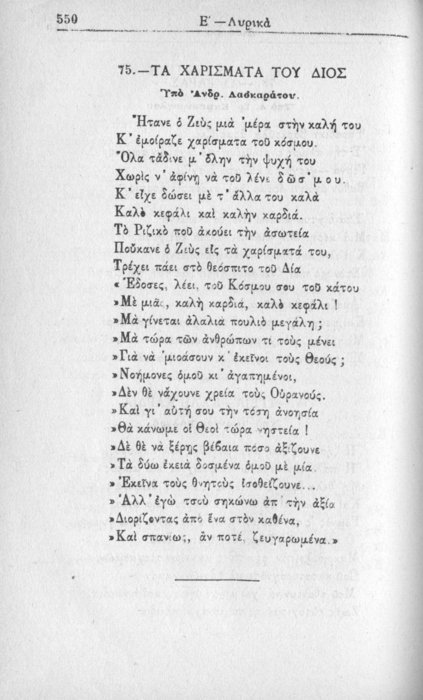 550
Ε΄ — Λυρικὰ
75.—ΤΑ ΧΑΡΙΣΜΑΤΑ ΤΟΥ ΔΙΟΣ
Ὑπὸ Ἀνδρ. Λασκαράτου.
Ἤτανε ὁ Ζεὺς μιὰ ᾽μέρα στὴν καλή του
Κ᾽ ἐμοίραζε χαρίσματα τοῦ κόσμου.
Ὅλα τἄδινε μ᾽ ὅλην τὴν ψυχή του
Χωρὶς ν᾽ ἀφίνῃ νὰ τοῦ λένε δῶσ᾽ μου.
Κ᾽ εἶχε δώσει μὲ τ᾽ ἄλλα του καλὰ
Καλὸ κεφάλι καὶ καλὴν καρδιά.
Τὸ Ριζικὸ ποῦ ἀκούει τὴν ἀσωτεία
Ποὔκανε ὁ Ζεὺς εἰς τὰ χαρίσματά του,
Τρέχει πάει στὸ θεόσπιτο τοῦ Δία
« Ἔδοσες, λέει, τοῦ Κόσμου σου τοῦ κάτου
»Μὲ μιᾶς, καλὴ καρδιά, καλὸ κεφάλι !
»Μὰ γίνεται ἀλαλιὰ πουλιὸ μεγάλη ;
»Μὰ τώρα τῶν ἀνθρώπων τι τοὺς μένει
»Γιὰ νὰ ᾽μιοάσουν κ᾽ ἐκεῖνοι τοὺς Θεούς ;
»Νοήμονες ὁμοῦ κι᾽ ἀγαπημένοι,
»Δὲν θὲ νἄχουνε χρεία τοὺς Οὐρανούς.
»Καὶ γι᾽ αὐτή σου τὴν τόση ἀνοησία
»Θὰ κάνωμε οἱ Θεοὶ τώρα νηστεία !
»Δὲ θὲ νὰ ξέρῃς βέβαια πόσο ἀξίζουνε
»Τὰ δύω ἐκειὰ δοσμένα ὁμοῦ μὲ μία.
»Ἐκεῖνα τοὺς θνητοὺς ἰσοθεΐζουνε...
»Ἀλλ᾽ ἐγὼ τσοὺ σηκώνω ἀπ᾽ τὴν ἀξία
»Διορίζοντας ἀπὸ ἕνα στὸν καθένα,
»Καὶ σπανίως, ἄν ποτέ, ζευγαρωμένα.»